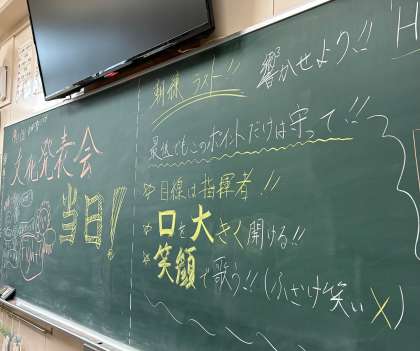 文化発表会
当日!
朝練 ラスト!!
響かせよう!!
最低でもこのポイントだけは守って!!
☆目線は指揮者!!
☆口を大きく開ける!!
☆笑顔で歌う!!(ふざけ笑い×)